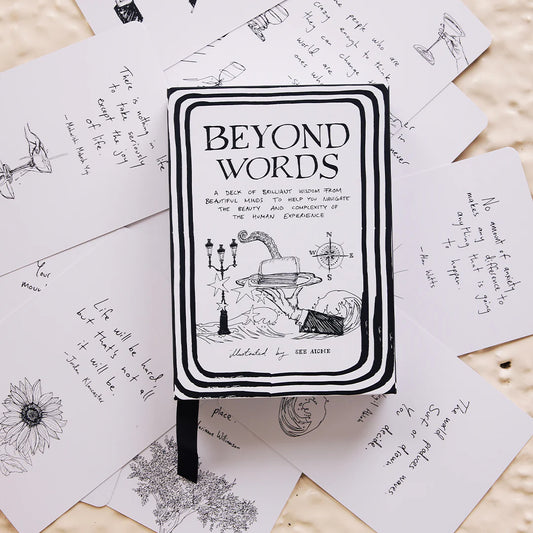 BEYOND
WORDS
A DECK OF BRILLIANT WISDOM FROM
BEAUTIFUL MINDS TO HELP YOU NAVIGATE
THE BEAUTY AND COMPLEXITY OF
THE HUMAN EXPERIENCE
N
W
E
S
illustrated by SEB AICHE
There is nothing in
to take seriously
except the joy
of life
people who are
crazy enough to think
they can change
world are
ones who
in
ever
No amount of anxiety
makes any difference to
anything that is going
to happen.
- Alan Watts
Your
move!
Life will be hard,
but that's not all
it will be.
place.
Marianne Williamson
The world produces waves
Surf or drown.
You decide.